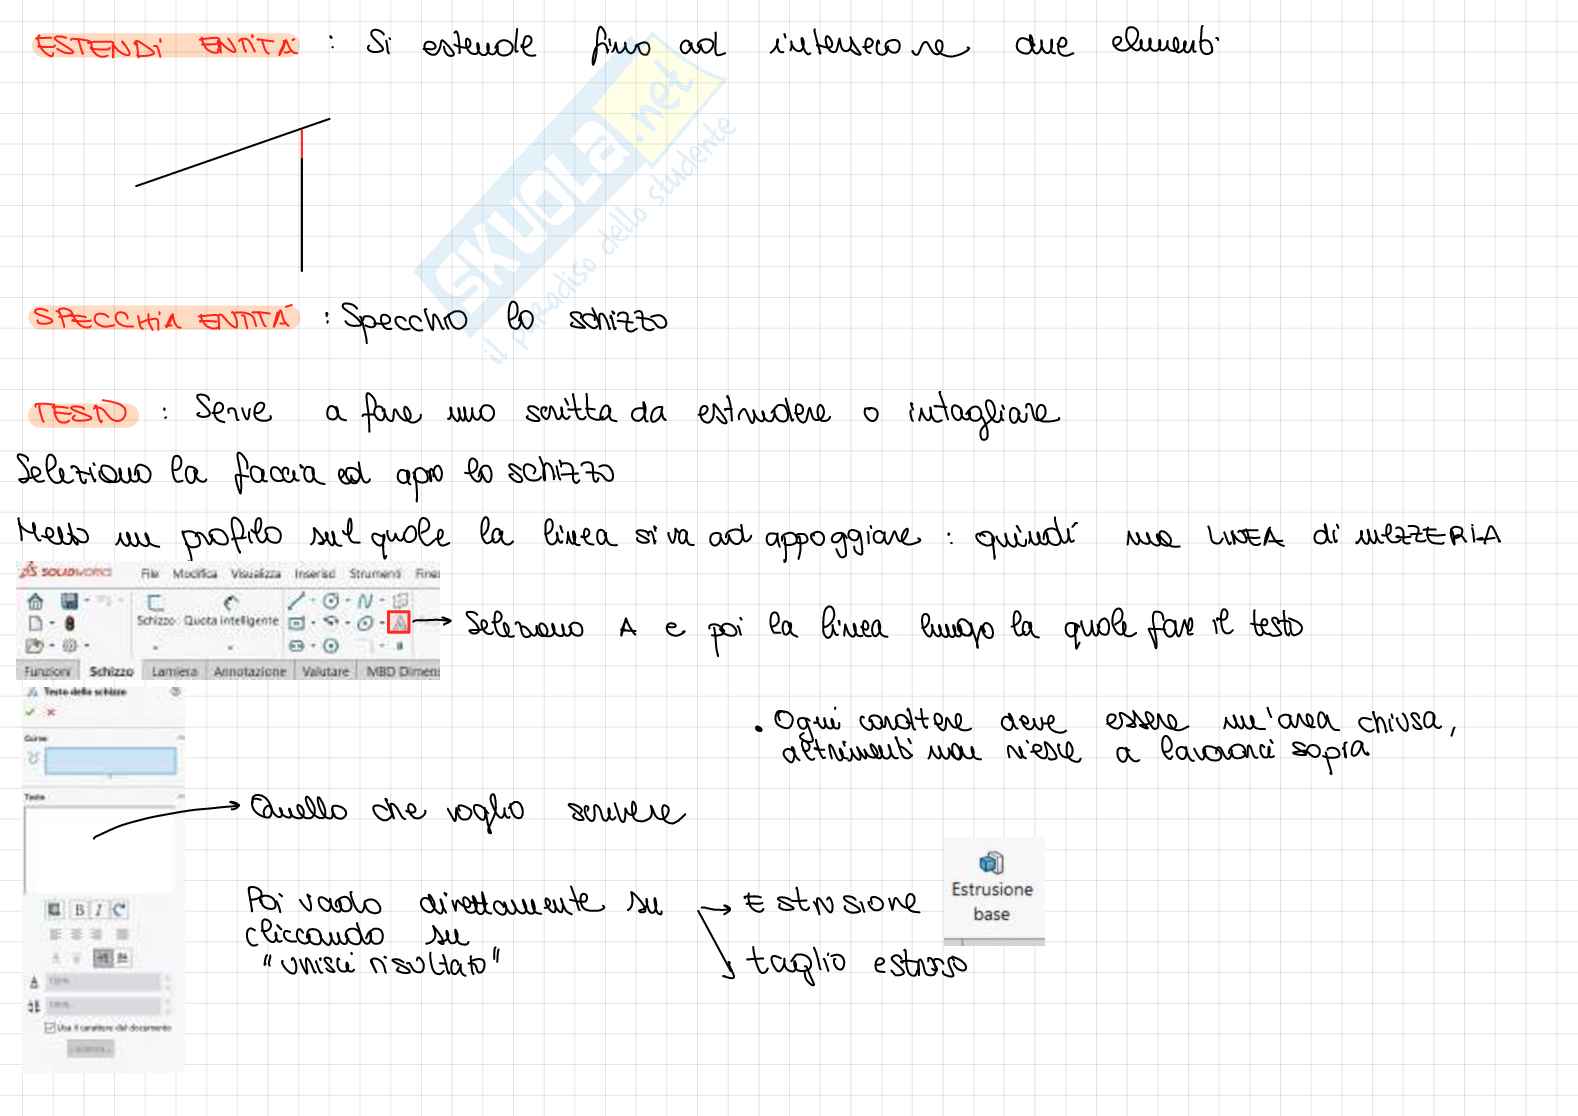 ESTENDI ENTITÀ : Si estende fino ad intersecare due elementi
SKUOLA.net
il paradiso dello studente
SPECCHIA ENTITÀ : Specchio lo schizzo
TESTO : Serve a fare una scritta da estrudere o intagliare
Seleziono la faccia ed apro lo schizzo
Metto un profilo sul quale la linea si va ad appoggiare : quindi una LINEA di MEZZERIA
SOLIDWORKS File Modifica Visualizza Inserisci Strumenti Fines
Schizzo Quota intelligente
Seleziono A e poi la linea lungo la quale fare il testo
Funzioni Schizzo Lamiera Annotazione Valutare MBD Dimens
Testo dello schizzo
Curve
• Ogni carattere deve essere un'area chiusa,
altrimenti non riesce a lavorarci sopra
Testo
Quello che voglio scrivere
Poi vado direttamente su → Estrusione
cliccando su
"unisci risultato"
taglio estruso
Estrusione
base
B I
100%
100%
Usa il carattere del documento